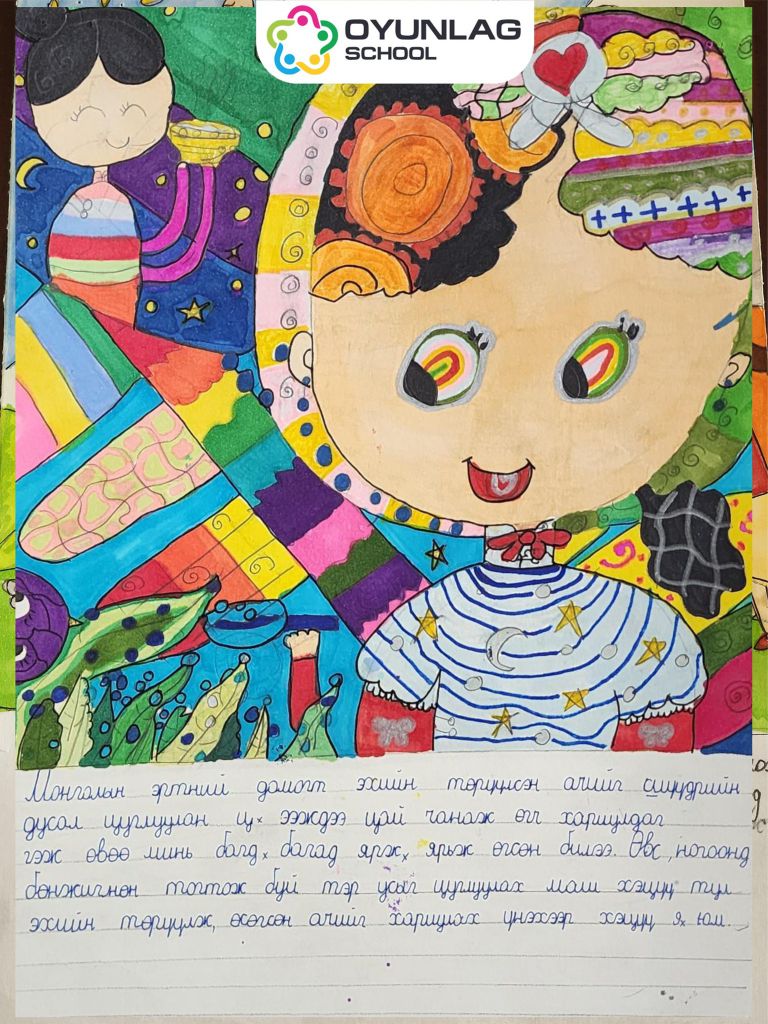 OYUNLAG
SCHOOL
Монголын эртний домогт эхийн төрүүлсэн ачийг шүүдрийн
дусал цуглуулан ц× ээждээ цай чанаж өгч хариулдаг
гэж өвөө минь багд× багад ярж× ярьж өгсөн билээ. Өвс, ногоонд
бөнжигнөн тогтож буй тэр усыг цуглуулах маш хэцүү тул
эхийн төрүүлж, өсгөсөн ачийг хариулах үнэхээр хэцүү я× юм.